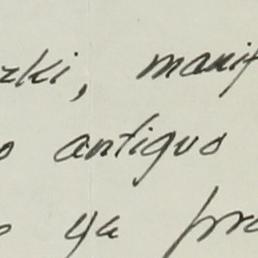 zki, manif
o antiguo
o ya pro